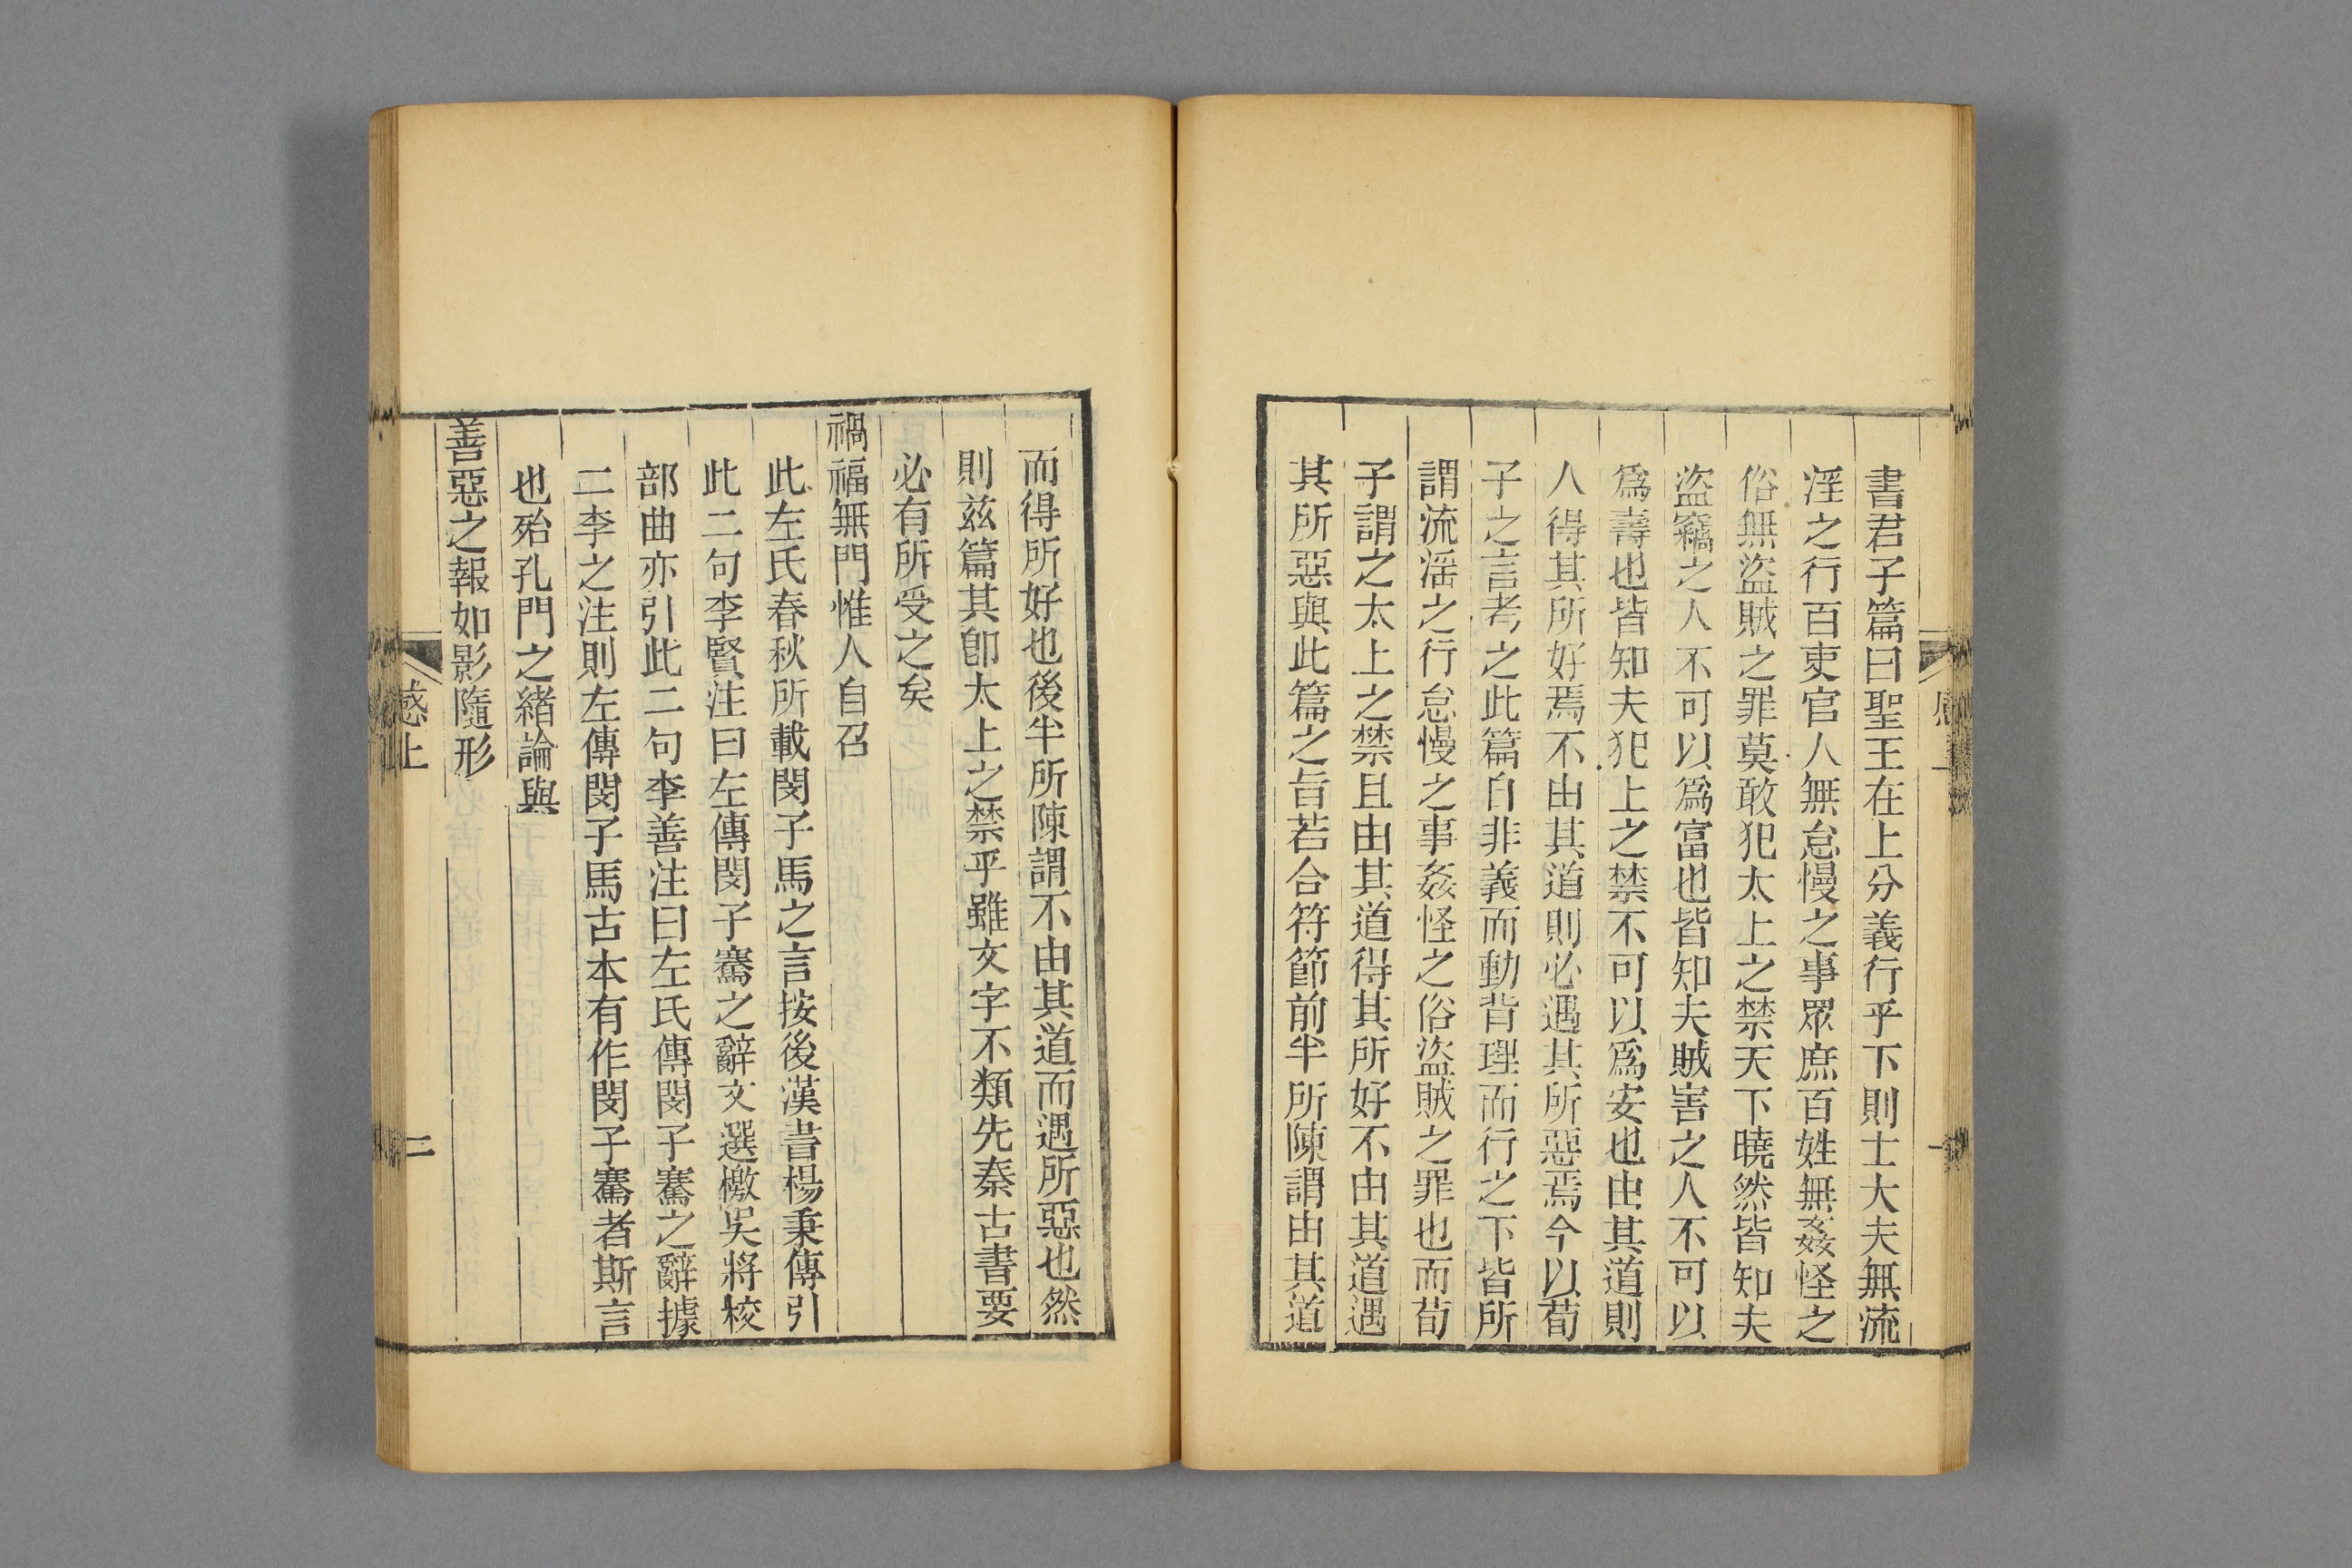 書君子篇曰聖王在上分義行乎下則士大夫無流
淫之行百吏官人無怠慢之事眾庶百姓無姦怪之
俗無盜賊之罪莫敢犯太上之禁天下曉然皆知夫
盜竊之人不可以爲富也皆知夫賊害之人不可以
爲壽也皆知夫犯上之禁不可以爲安也由其道則
人得其所好焉不由其道則必遇其所惡焉今以荀
子之言考之此篇自非義而動背理而行之下皆所
謂流淫之行怠慢之事姦怪之俗盜賊之罪也而荀
子謂之太上之禁且由其道得其所好不由其道遇
其所惡與此篇之旨若合符節前半所陳謂由其道
而得所好也後半所陳謂不由其道而遇所惡也然
則茲篇其卽太上之禁乎雖文字不類先秦古書要
必有所受之矣
禍福無門惟人自召
此左氏春秋所載閔子馬之言按後漢書楊秉傳引
此二句李賢注曰左傳閔子騫之辭文選檄吳將校
部曲亦引此二句李善注曰左氏傳閔子騫之辭據
二李之注則左傳閔子馬古本有作閔子騫者斯言
也殆孔門之緒論與
善惡之報如影隨形
感上
二